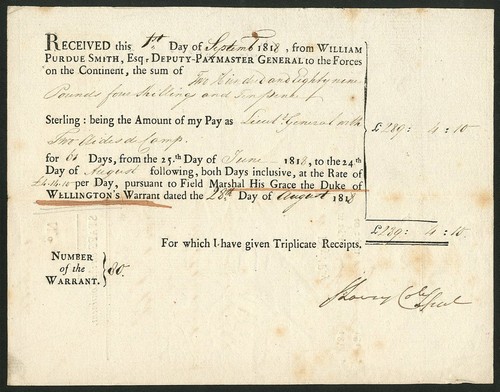 RECEIVED this 1st Day of Septembr 1818, from WILLIAM
PURDUE SMITH, Esqr. DEPUTY-PAYMASTER GENERAL to the Forces
on the Continent, the sum of Two Hundred and Eighty nine
Pounds four Shillings and Ten pence
Sterling: being the Amount of my Pay as Lieut. General with
Two Aides de Camp.
£289: 4: 10
for 61 Days, from the 25.th Day of June 1818, to the 24th
Day of August following, both Days inclusive, at the Rate of
£4.14.10 per Day, pursuant to Field Marshal His Grace the Duke of
WELLINGTON'S Warrant dated the 28th Day of August 1818
£289: 4: 10.
For which I have given Triplicate Receipts.
NUMBER
of the
WARRANT.
80.
Lowry Cole